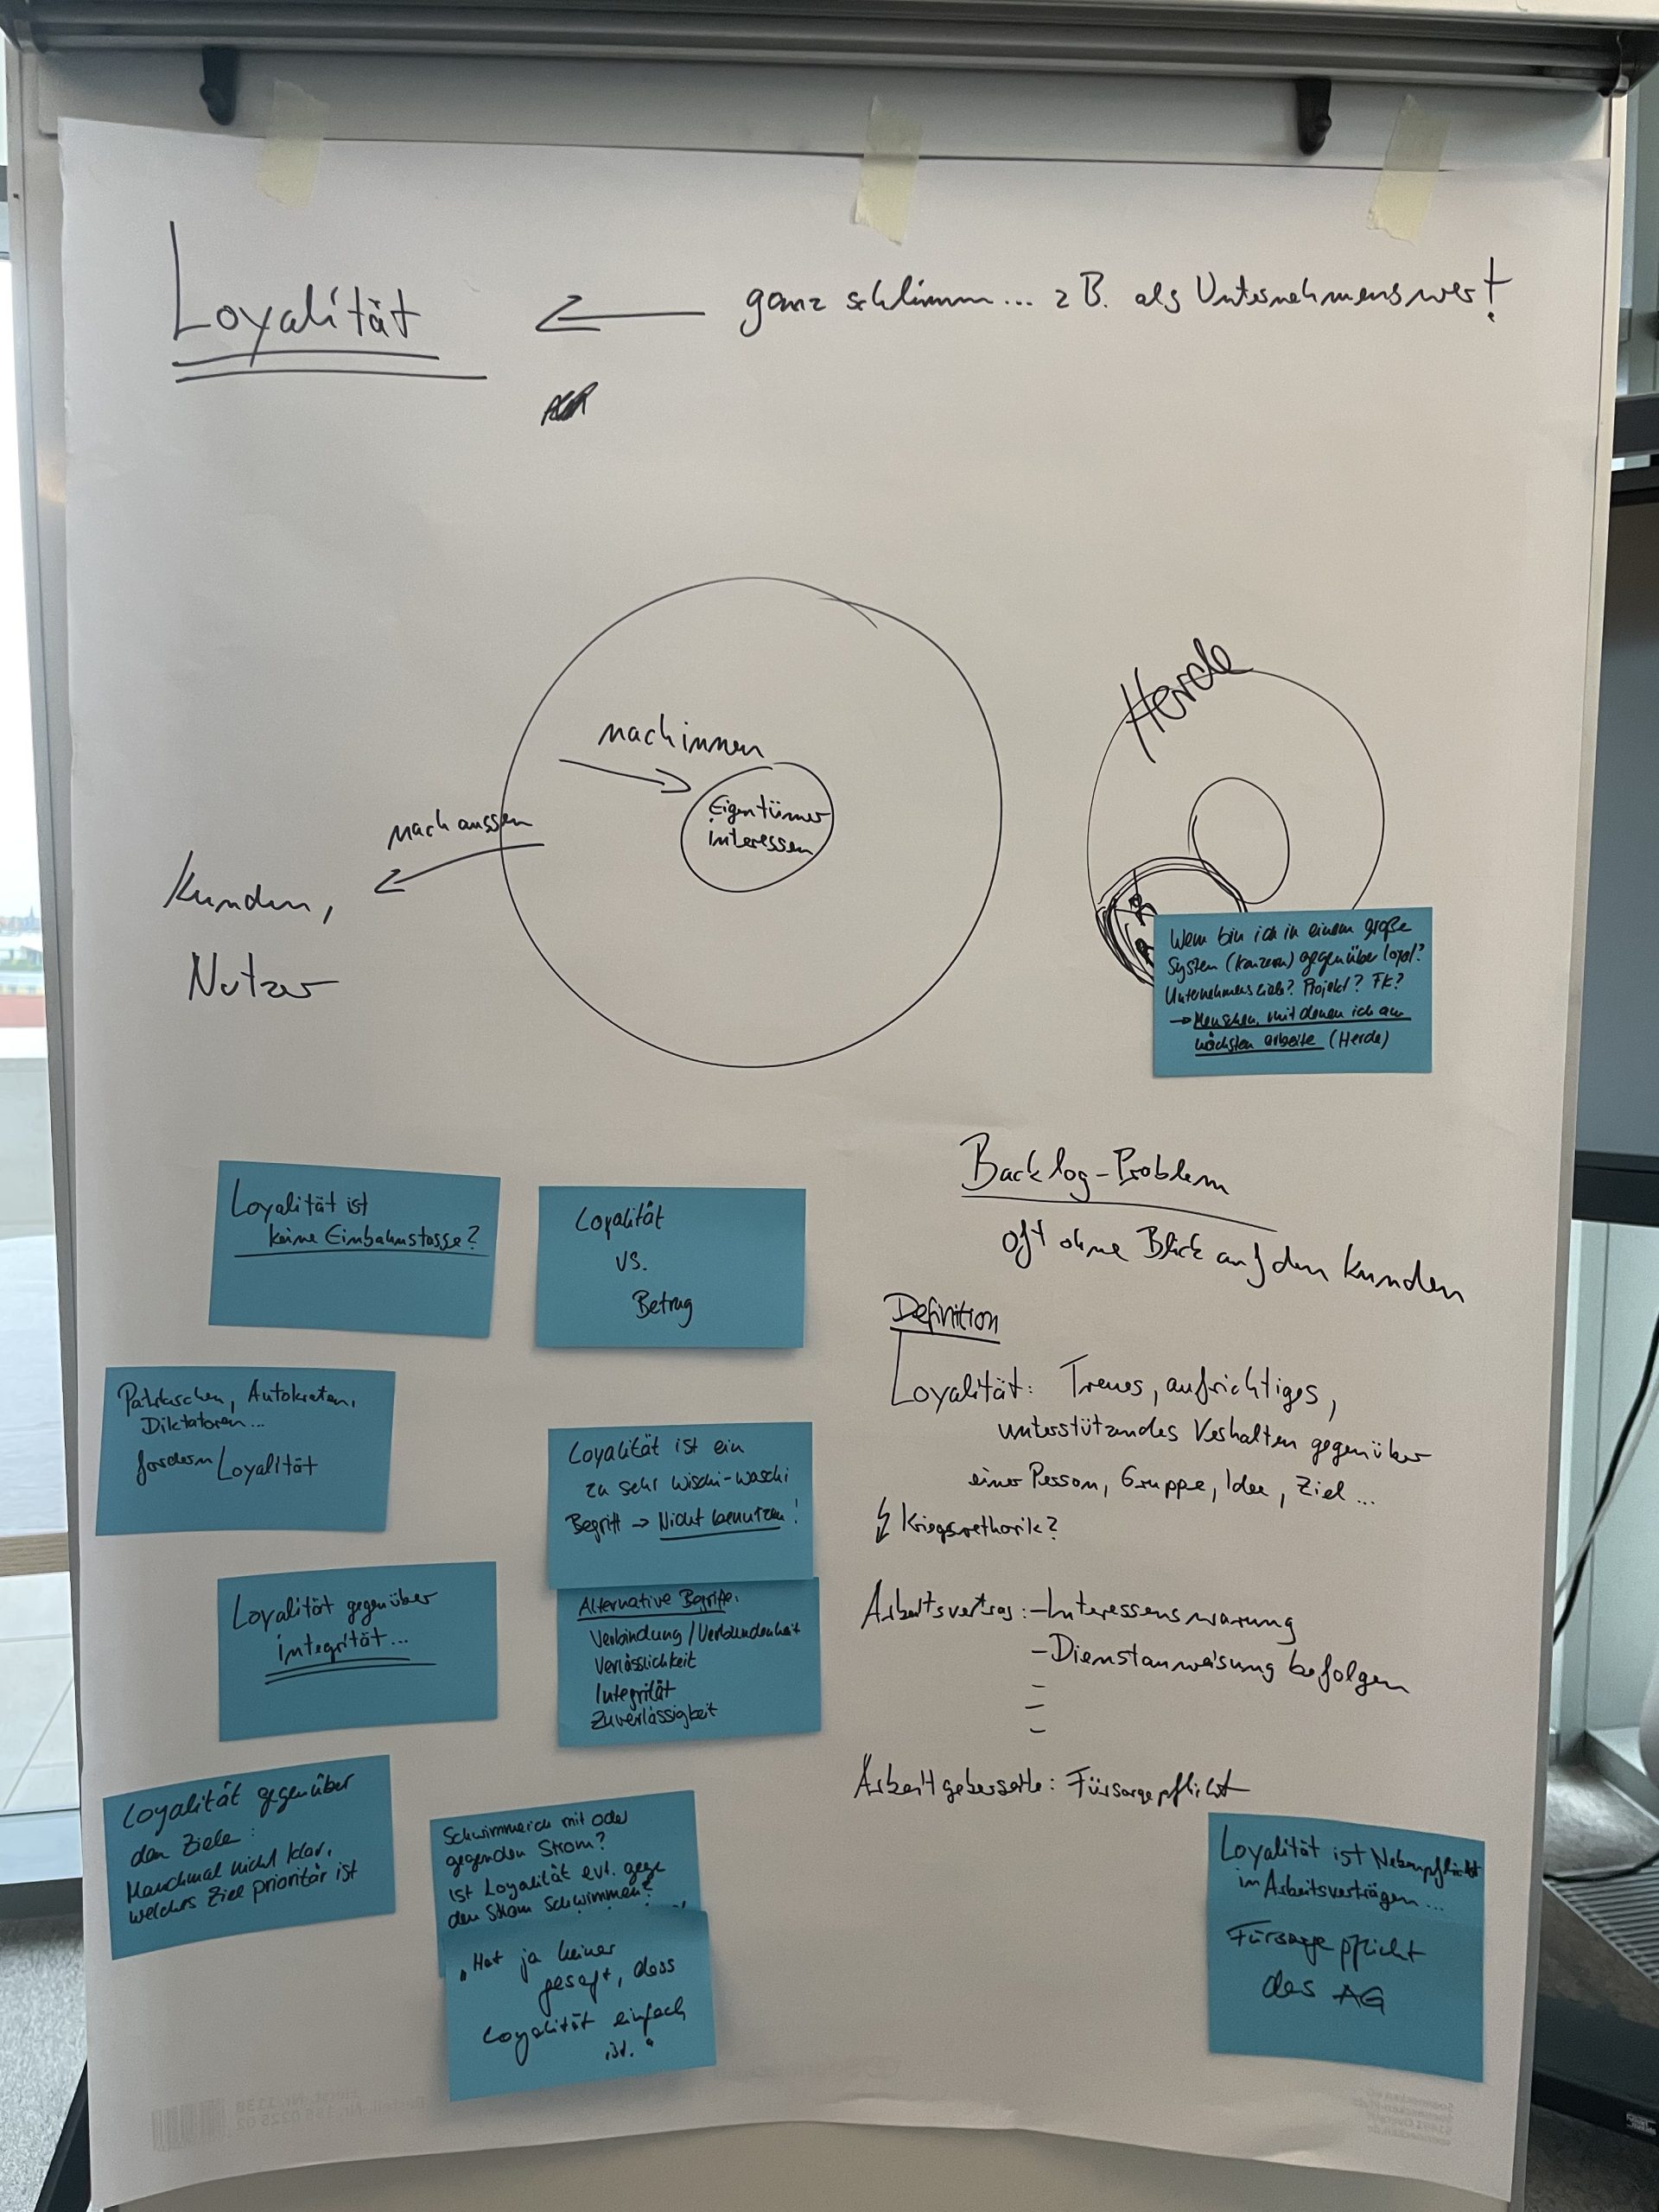 Loyalität
ganz schlimm... z B. als Unternehmenswert!
nach innen
Eigentümer
interessen
nach aussen
Kunden,
Nutzer
Herde
Wem bin ich in einem große
System (Konzern) gegenüber loyal?
Unternehmensziele? Projekt? FK?
→ Menschen, mit denen ich am
nächsten arbeite (Herde)
Backlog-Problem
oft ohne Blick auf den Kunden
Definition
Loyalität: Treues, aufrichtiges,
unterstützendes Verhalten gegenüber
einer Person, Gruppe, Idee, Ziel...
Kriegsrethorik?
Arbeitsvertrag: - Interessenswarung
- Dienstanweisung befolgen
-
-
-
Arbeitgeberseite: Fürsorgepflicht
Loyalität ist
keine Einbahnstasse?
Loyalität
vs.
Betrug
Autokraten,
Diktatoren...
fordern Loyalität
Loyalität ist ein
zu sehr wischi-waschi
Begriff → Nicht benutzen!
Loyalität gegenüber
integrität...
Alternative Begriffe:
Verbindung/Verbundenheit
Verlässlichkeit
Integrität
Zuverlässigkeit
Loyalität gegenüber
den Ziele:
Manchmal nicht klar,
welches Ziel prioritär ist
Schwimme ich mit oder
gegen den Strom?
ist Loyalität evt. gege
den Strom schwimmen?
„Hat ja keiner
gesagt, dass
Loyalität einfach
ist."
Loyalität ist Nebenpflicht
in Arbeitsverträgen...
Fürsorgepflicht
des AG